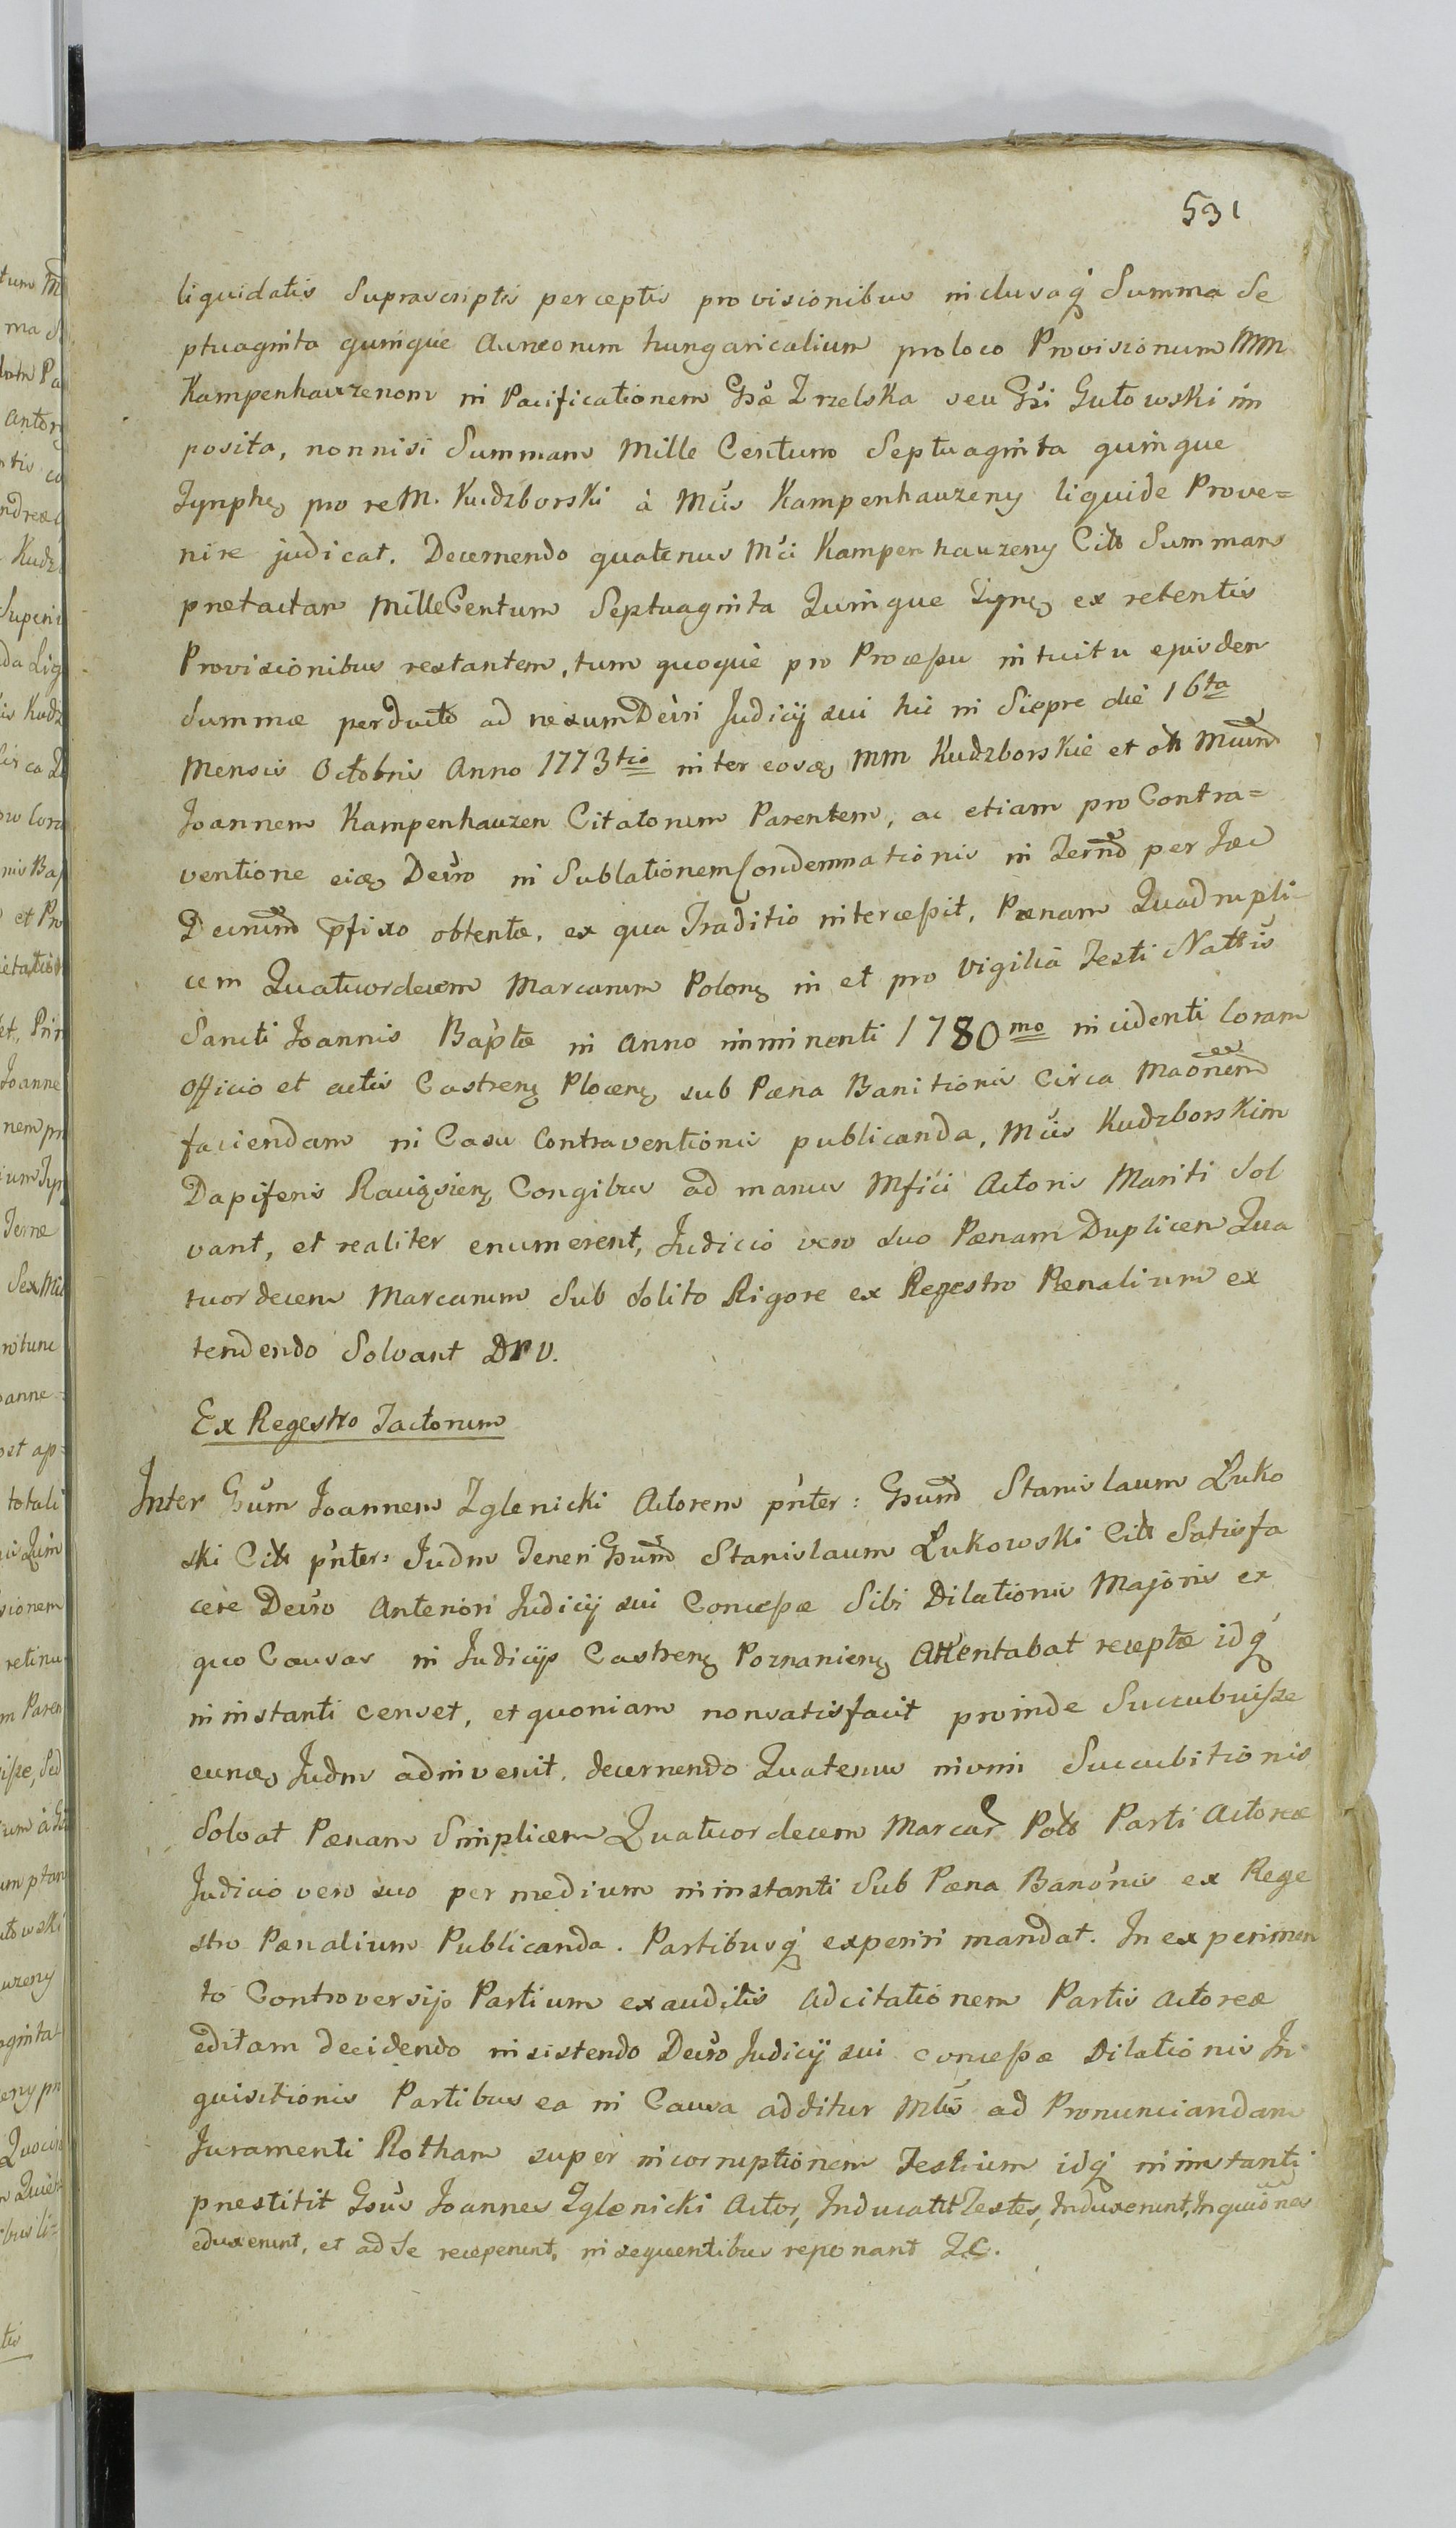 531
liquidatis Suprascriptis perceptis provisionibus inclusaq́ Summa Se
ptuaginta quinque Aureorum hungaricalium pro loco Provisionum MM
Kampenhauzenom in Pacificationem Gsæ Zrzelska seu Gsi Gutowski im
posita, nonnisi Summam Mille Centum Septuaginta quinque
Tynph. pro re M. Kudzborski à Mcis Kampenhauzeny liquide Prove=
nire judicat. Decernendo quatenus Mci Kampenhauzeny Citt Summam
prætactam Mille Centum Septuaginta Quinque Tyn. ex retentis
Provisionibus restantem, tum quoque pro Processu intuitu ejusdem
Summæ perducto ad nexum Decri Judicij sui hic in Sierpre die 16ta
Mensis Octobris Anno 1773tio inter eosq. MM Kudzborskie et olt Mcum
Joannem Kampenhauzen Citatorum Parentem, ac etiam pro Contra=
ventione ejq. Decro in Sublationem Condemnationis in Termo per Idem
Decrum pfixo obtentæ, ex qua Traditio intercessit, Pænam Quadrupli
cem Quatuordecem Marcarum Polon. in et pro Vigilia Festi Nattis
Sancti Joannis Baptæ in Anno imminenti 1780mo incidenti Coram
Officio et actis Castren. Plocen. sub Pæna Banitionis Circa Maonem
faciendam in Casu Contraventionis publicanda, Mcis Kudzborskim
Dapiferis Racięsien. Congibus ad manus Mfici Actoris Mariti Sol
vant, et realiter enumerent, Judicio vero suo Pænam Duplicem Qua
tuordecem Marcarum Sub Solito Rigore ex Regestro Pænalium ex
tendendo Solvant DrV.
Ex Regestro Tactorum
Inter Gsum Joannem Zglenicki Actorem pnter: Gsum Stanislaum Łuko
ski Citt pnter: Judm Teneri Gsum Stanislaum Łukowski Citt Satisfa
cere Decro Anteriori Judicij sui Concessæ Sibi Dilationis Majoris ex
quo Causas in Judicijs Castren. Poznanien. Attentabat receptæ idq́
in instanti censet, et quoniam non satisfacit proinde Succubuisse
eunq. Judm adinvenit, decernendo Quatenus nomi Succubitionis
Solvat Pænam Simplicem Quatuordecem Marcar Polt Parti Actoreæ
Judicio vero suo per medium in instanti Sub Pæna Banonis ex Rege
stro Pænalium Publicanda. Partibusq́ experiri mandat. In experimen
to Controversijs Partium exauditis Adcitationem Partis Actoreæ
editam decidendo insistendo Decro Judicij sui concessæ Dilationis In
quisitionis Partibus ea in Causa additur Mlis ad Pronunciandam
Juramenti Rotham super incorruptionem Testium idq́ in instanti
præstitit Gsus Joannes Zglenicki Actor, Inducant Testes, Induxerunt, Inquiones
eduxerunt, et ad Se receperunt, in sequentibus reponant